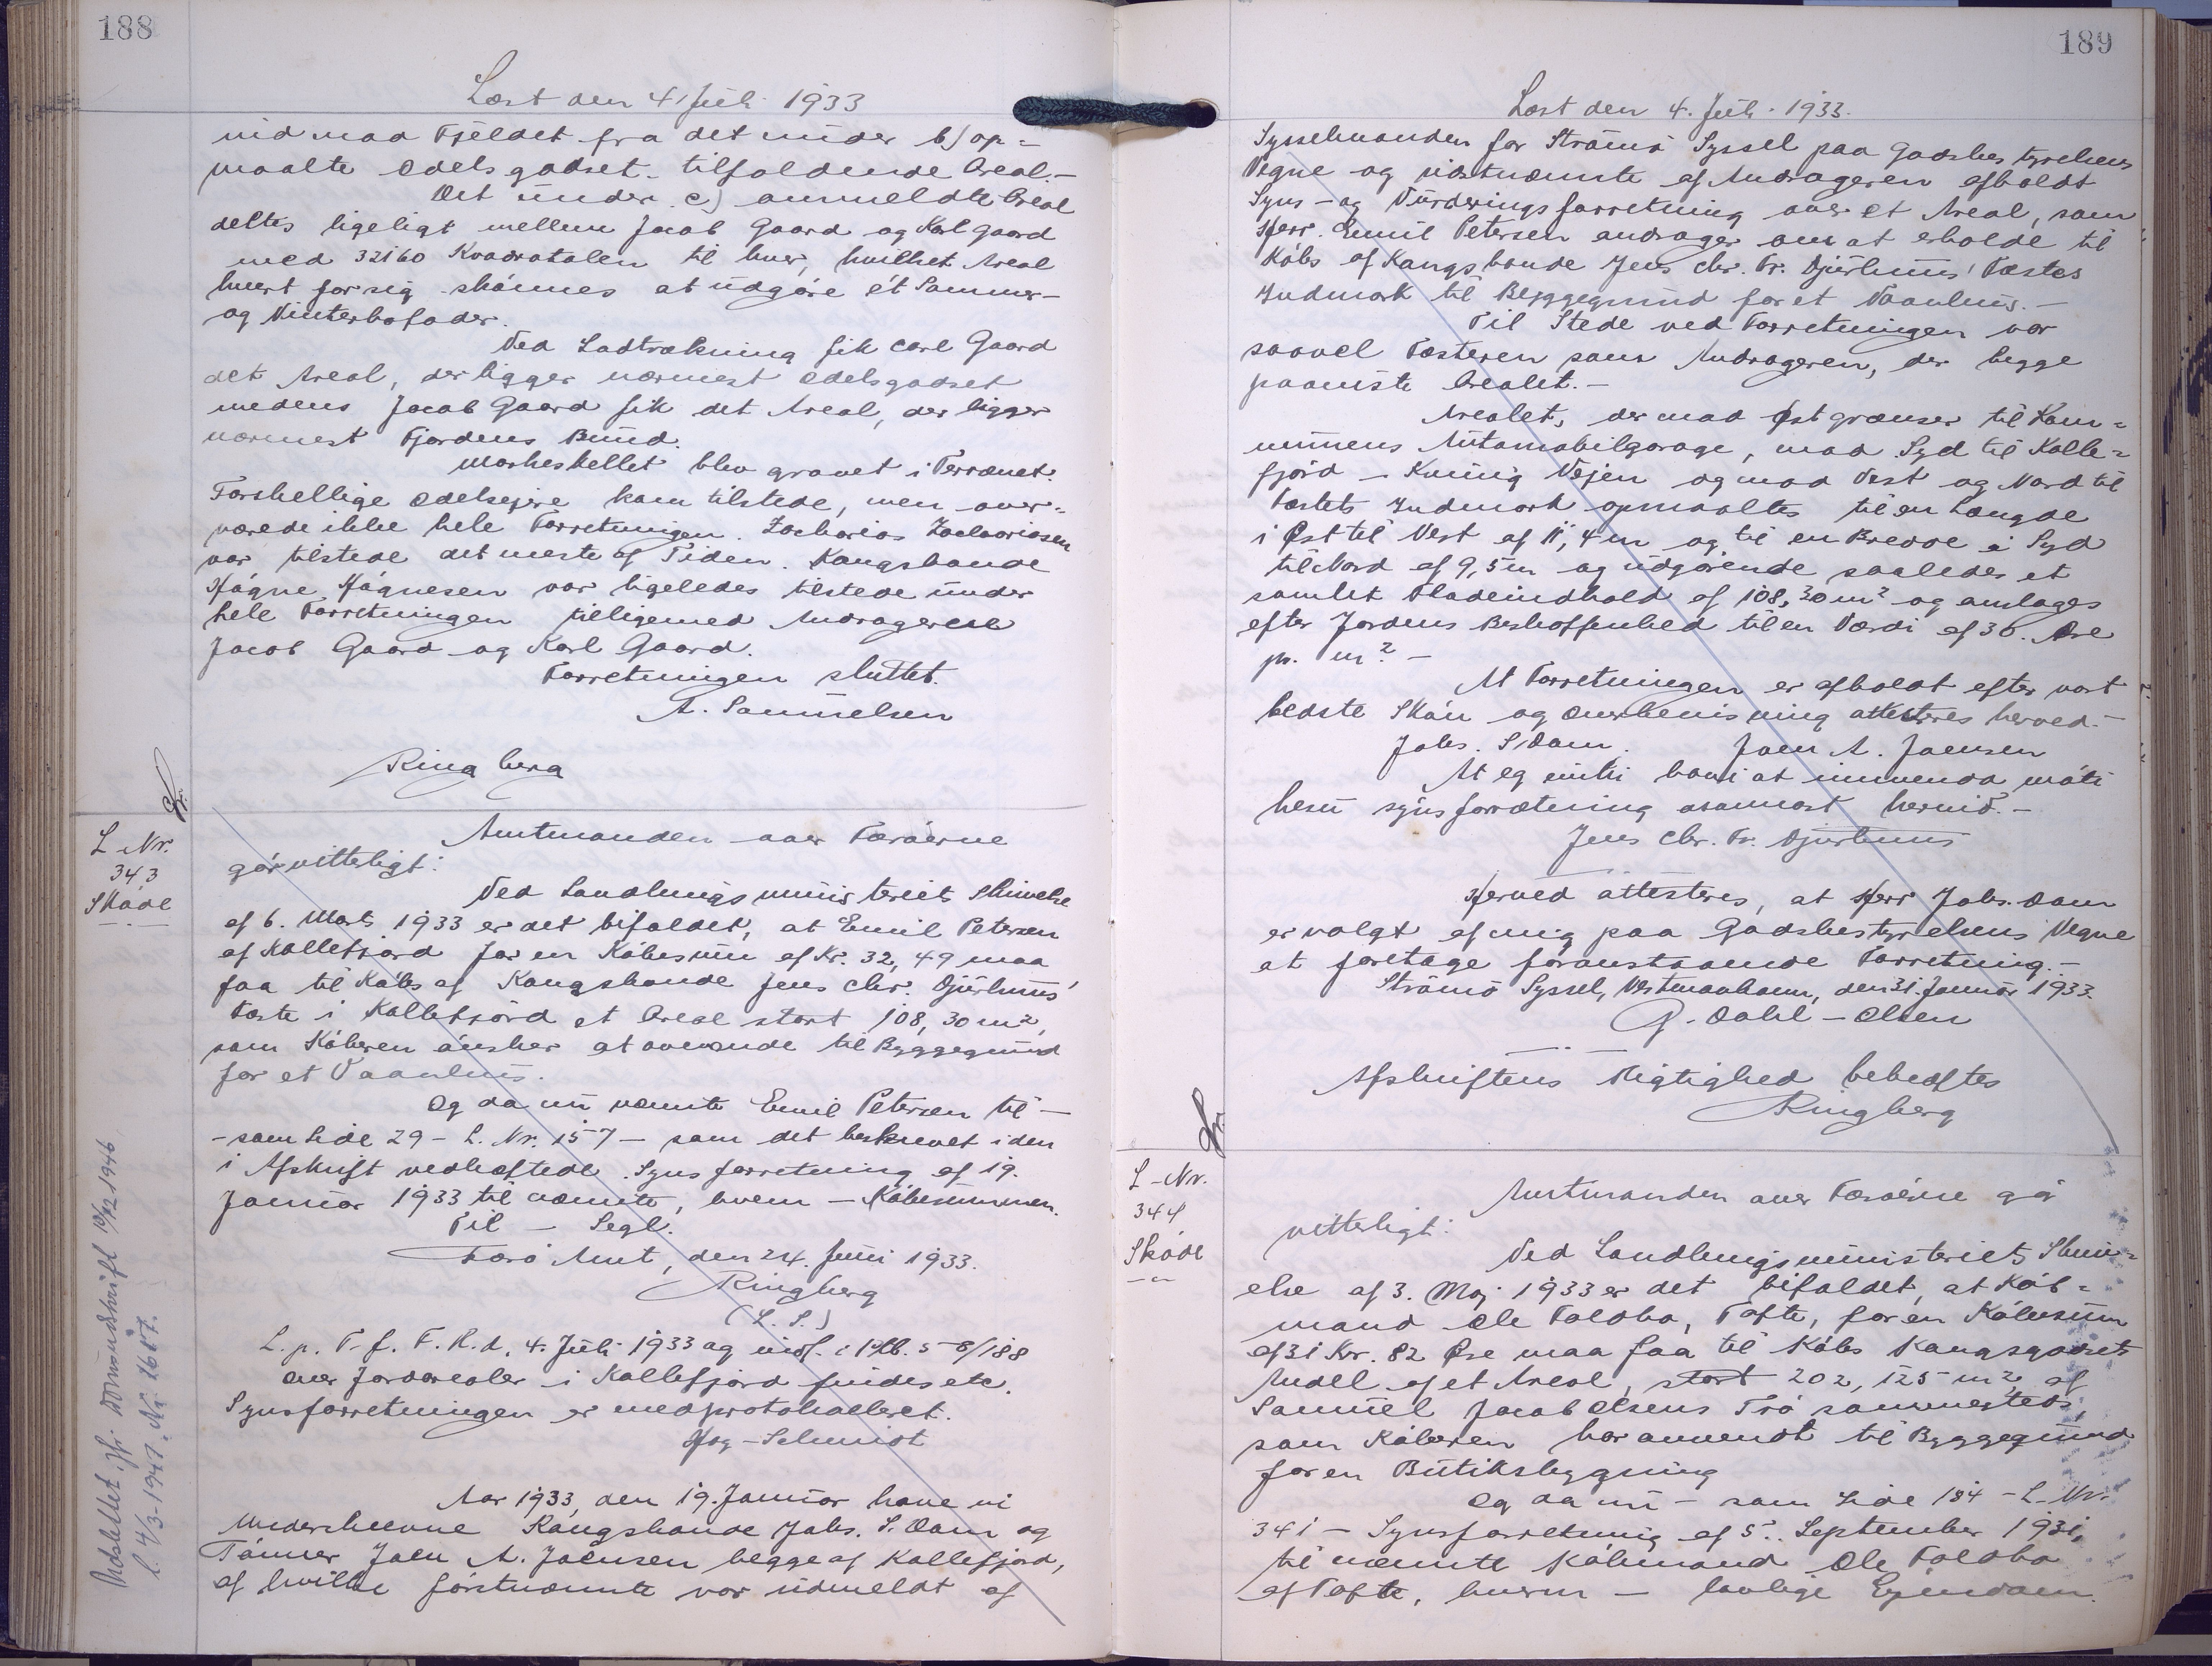 188
Læst den 4. Juli 1933
ind mod Fjeldet fra det under b) op=
maalte Odelsgodset tilfaldende Areal.-
Det under c) anmeldte Areal
deltes ligeligt mellem Jacob Gaard og Karl Gaard
med 32160 Kvadratalen til hver, hvilket Areal
hvert for sig skønnes at udgøre ét Sommer-
og Vinterhofoder.
Ved Lodtrækning fik Carl Gaard
det Areal, der ligger nærmest Odelsgodset
medens Jacob Gaard fik det Areal, der ligger
nærmest Fjordens Bund.
Markeskellet blev gravet i Terrænet.
Forskellige Odelsejere kom tilstede, men over=
værede ikke hele Forretningen. Zacharias Zachariasen
var tilstede det meste af Tiden. Kongsbonde
Høgne Høgnesen var ligeledes tilstede under
hele Forretningen tilligemed Andragerne
Jacob Gaard og Karl Gaard.
Forretningen sluttet.
A. Samuelsen
Ringberg
L. Nr.
343
Skøde
Amtmanden over Færøerne
gør vitterligt:
Ved Landbrugsministeriets Skrivelse
af 6. Marts 1933 er det bifaldet, at Emil Petersen
af Kollefjord for en Købesum af Kr. 32,49 maa
faa til Købs af Kongsbonde Jens Chr. Djurhuus'
Fæste i Kollefjord et Areal stort 108,30 m²,
som Køberen ønsker at anvende til Byggegrund
for et Vaanhus.
Og da nu nævnte Emil Petersen til -
- som Side 29 - L. Nr. 157 - som det beskrevet i den
i Afskrift vedhæftede Synsforretning af 19.
Januar 1933 til nævnte, hvem - Købesummen.
Til - Segl.
Færø Amt, den 24. Juni 1933.
Ringberg
(L. S.)
L. p. T. f. F. R. d. 4. Juli 1933 og indf. i Ptb. 5-8/188
over Jordarealer i Kollefjord findes etc.
Synsforretningen er medprotokolleret.
Høg-Schmidt
Aar 1933, den 19. Januar have vi
Underskrevne Kongsbonde Johs. S. Dam og
Tømrer Joen A. Joensen begge af Kollefjord,
af hvilke førstnævnte var udmeldt af
Udslettet jfr. Grundskrift 10/12 1946
l. 4/3-1947. Nr.
189
Læst den 4. Juli 1933.
Sysselmanden for Strømø Syssel paa Godsbestyrelsens
Vegne og sidstnævnte af Andrageren afholdt
Syns- og Vurderingsforretning over et Areal, som
Herr. Emil Petersen andrager om at erholde til
Købs af Kongsbonde Jens Chr. Fr. Djurhuus' Fæstes
Indmark til Byggegrund for et Vaanhus.-
Til Stede ved Forretningen var
saavel Fæsteren som Andrageren, der begge
paaviste Arealet.-
Arealet, der mod Øst grænser til Kom=
munens Automobilgarage, mod Syd til Kolle=
fjord - Kvivig Vejen og mod Vest og Nord til
Fæstets Indmark opmaaltes til en Længde
i Øst til Vest af 11,4 m og til en Bredde i Syd
til Nord af 9,5 m og udgørende saaledes et
samlet Fladeindhold af 108,30 m² og ansloges
efter Jordens Beskaffenhed til en Værdi af 30 Øre
pr. m².-
At Forretningen er afholdt efter vort
bedste Skøn og Overbevisning attesteres herved.-
Johs. S. Dam. Joen A. Joensen
At eg einki havi at innvenda móti
hesu sýnsforrætning ásannast hervið.-
Jens Chr. Fr. Djurhuus
Herved attesteres, at Herr Johs. Dam
er valgt af mig paa Godsbestyrelsens Vegne
at foretage foranstaaende Forretning.-
Strømø Syssel, Vestmanhavn, den 31. Januar 1933.
G. Dahl-Olsen
Afskriftens Rigtighed bekræftes
Ringberg
L. Nr.
344
Skøde
Amtmanden over Færøerne gør
vitterligt:
Ved Landbrugsministeriets Skriv=
else af 3. Maj 1933 er det bifaldet, at Køb=
mand Ole Foldbo, Tofte, for en Købesum
af 31 Kr. 82 Øre maa faa til Købs Kongsgodsets
Andel af et Areal, stort 202,125 m² af
Samuel Jacob Olsens Trø sammesteds,
som Køberen har anvendt til Byggegrund
for en Butiksbygning
Og da nu - som Side 184 - L. Nr.
341 - Synsforretning af 5. September 1931,
til nævnte Købmand Ole Foldbo
af Tofte, hvem - lovlige Ejendom.